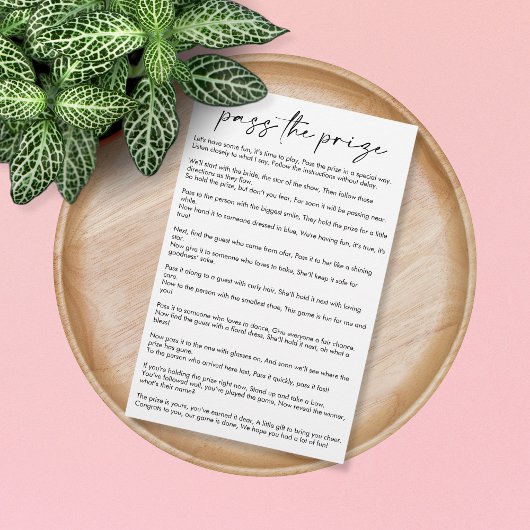 pass the prize
Let's have some fun, it's time to play, Pass the prize in a special way.
Listen closely to what I say, Follow the instructions without delay.
We'll start with the bride, the star of the show, Then follow those
directions as they flow,
So hold the prize, but don't you fear, For soon it will be passing near.
Pass to the person with the biggest smile, They hold the prize for a little
while.
Now hand it to someone dressed in blue, We're having fun, it's true, it's
true!
Next, find the guest who came from afar, Pass it to her like a shining
star.
Now give it to someone who loves to bake, She'll keep it safe for
goodness' sake.
Pass it along to a guest with curly hair, She'll hold it next with loving
care.
Now to the person with the smallest shoe, This game is fun for me and
you!
Pass it to someone who loves to dance, Give everyone a fair chance.
Now find the guest with a floral dress, She'll hold it next, oh what a
bless!
Now pass it to the one with glasses on, And soon we'll see where the
prize has gone.
To the person who arrived here last, Pass it quickly, pass it fast!
If you're holding the prize right now, Stand up and take a bow,
You've followed well, you've played the game, Now reveal the winner,
what's their name?
The prize is yours, you've earned it dear, A little gift to bring you cheer.
Congrats to you, our game is done, We hope you had a lot of fun!